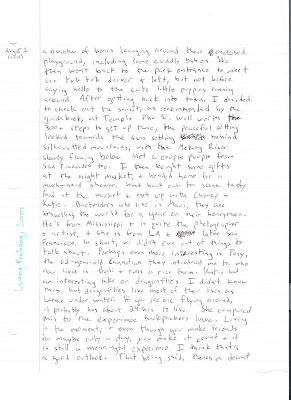 August 2
a number of hours lounging around their enclosed
playground, including some cuddly babies. We
then went back to the park entrance to meet
our tuk tuk driver + left, but not before
saying hello to the cute little puppies running
around. After getting back into town, I decided
to check out the sunset, as recommended by the
guidebook, at Temple Phu Si. Well worth the
300+ steps to get up there, the peaceful setting
looked towards the sun setting behind
silhouetted mountains, with the Mekong River
slowly flowing below. Met a couple people from
San Francisco too. I then bought some gifts
at the night market, + headed home for a
much-needed shower. Went back out for some tasty
food at the market + met up with +
Katie. Bartenders who live in Maui, they are
travelling the world for a year on their honeymoon.
He's from Mississippi + is quite the photographer
+ artist, + she is from LA + later San
Francisco. In short, we didn't run out of things to
talk about. Perhaps even more interesting is Tony,
the 62-year-old Canadian that introduced me to who
now lives in Bali + runs a rice farm. Katie had
an interesting take on dragonflies. I didn't know
this, but dragonflies live most of their lives as
larvae under water. If you see one flying around,
it probably has about 24 hrs to live. She compared
this to the experience backpackers have. Living
in the moment, + even though you make friends
for maybe only a day, you make it count + it
is still a meaningful experience. I think that's
a good outlook. That being said, there's a decent
Luang Prabang, Laos